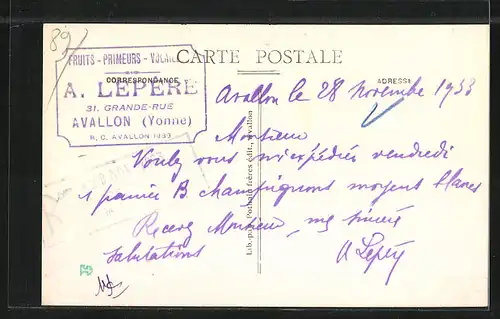 89
CARTE POSTALE
CORRESPONDANCE
ADRESSE
FRUITS - PRIMEURS -
A. LEPÈRE
31. GRANDE-RUE
AVALLON (Yonne)
R. C. AVALLON
Avallon le 28 Novembre 1933
Monsieur
Voulez vous m'expédier vendredi
1 panier B. champignons moyens blancs
Recevez Monsieur, mes sincères
salutations
A Lepère